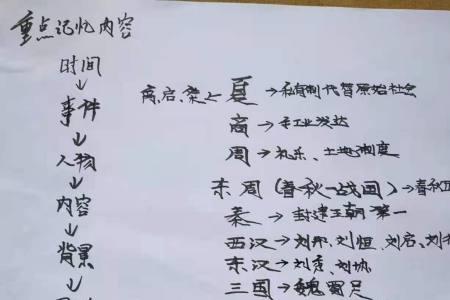 重点记忆内容
时间
↓
事件
↓
人物
↓
内容
↓
背景
↓
禹、启、桀← 夏 →私有制代替原始社会
商 →手工业发达
周 →礼乐、土地制度
东周(春秋-战国)→春秋五
秦 →封建王朝第一
西汉→刘邦、刘恒、刘启、刘
东汉→刘秀、刘协
三国→魏蜀吴